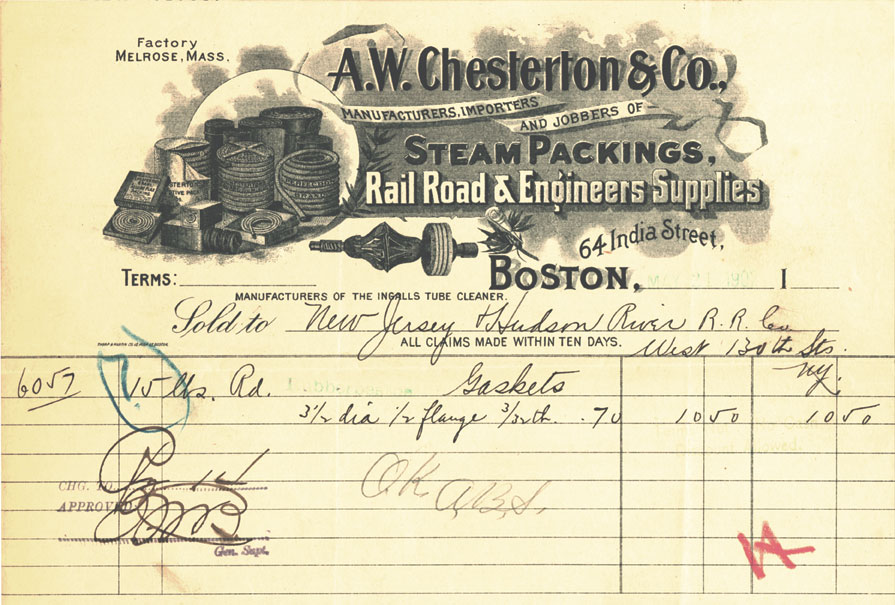 Factory
MELROSE, MASS.
A.W. Chesterton & Co.,
MANUFACTURERS, IMPORTERS
AND JOBBERS OF
STEAM PACKINGS,
Rail Road & Engineers Supplies
64 India Street,
TERMS: BOSTON, 1
MANUFACTURERS OF THE INGALLS TUBE CLEANER.
Sold to New Jersey & Hudson River R.R. Co.
ALL CLAIMS MADE WITHIN TEN DAYS. West 130th Sts.
NY.
6057 15 lbs. Rd. Gaskets
3 1/2 dia 1/2 flange 3/32 th. .70 10 50 10 50
CHG. TO
APPROVED
O.K. A.B.S.
Gen. Supt.